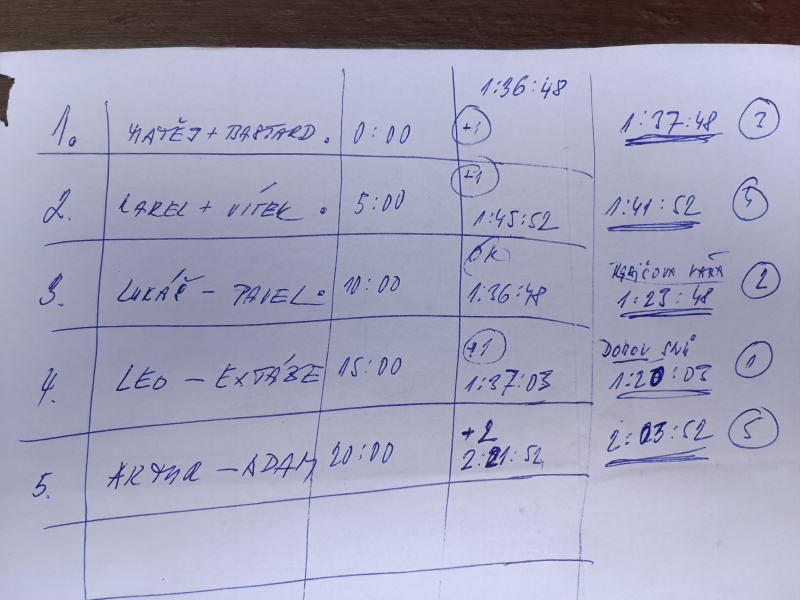 1:36:48
1. MATĚJ + BASTARD. 0:00 +1 1:37:48 3
2. KAREL + VÍTEK. 5:00 +1 1:45:52 1:41:52 4
3. LUKÁŠ - PAVEL. 10:00 OK 1:36:48 1:23:48 2
4. LEO - EXTÁZE 15:00 +1 1:37:03 1:20:03 1
5. ARTUR - ADAM 20:00 +2 2:21:52 2:03:52 5